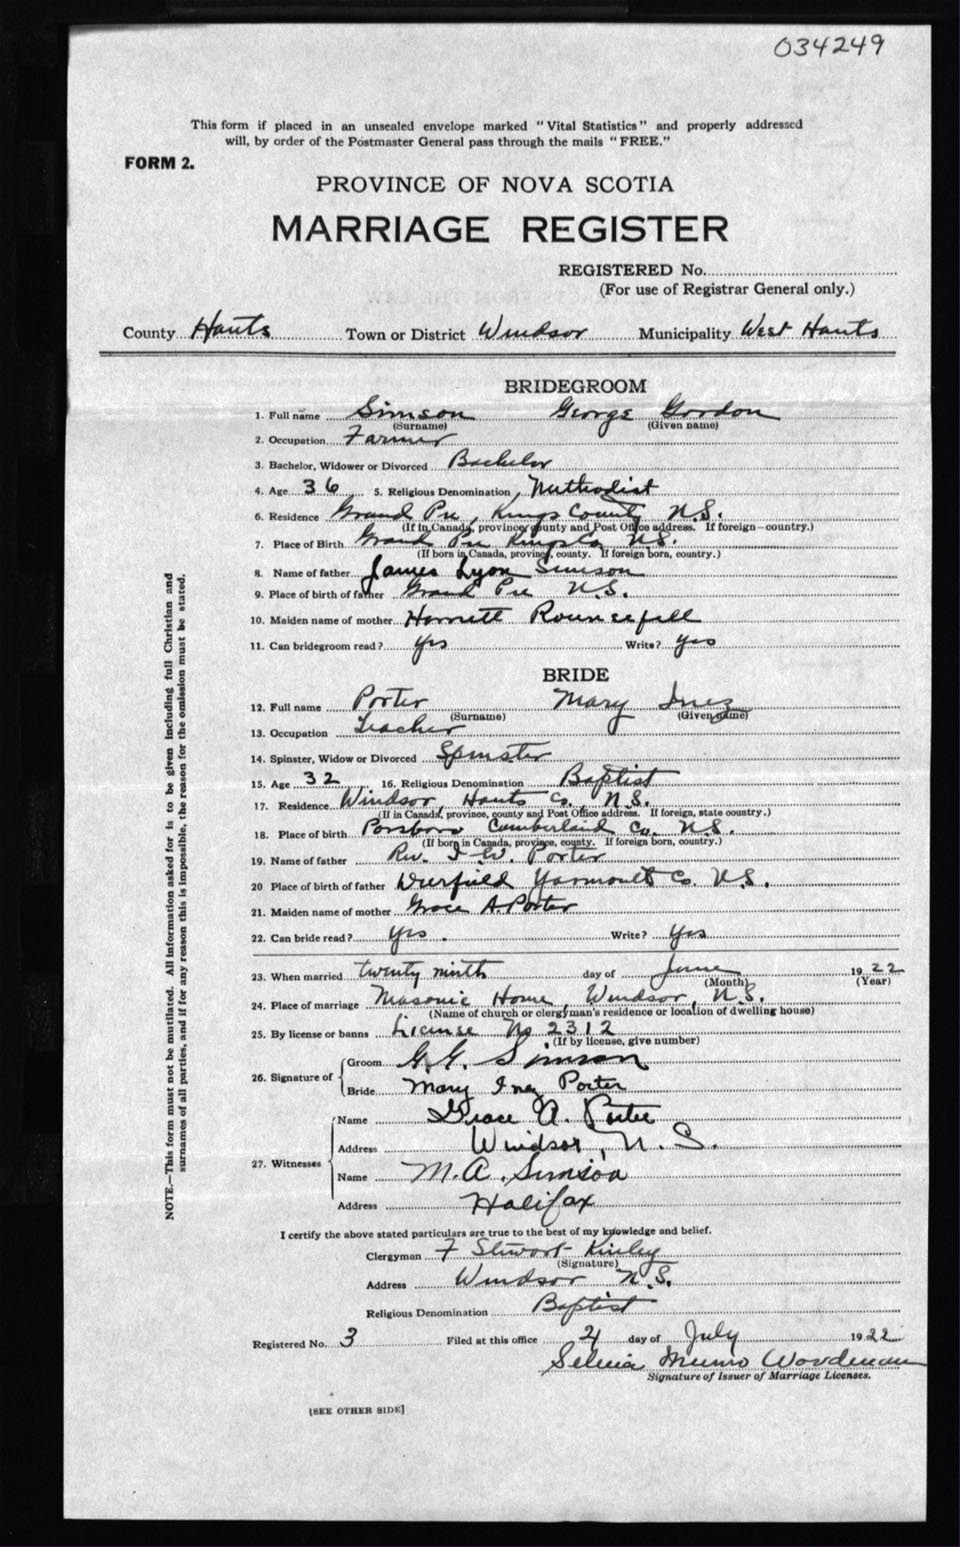 034249
This form if placed in an unsealed envelope marked "Vital Statistics" and properly addressed
will, by order of the Postmaster General pass through the mails "FREE."
FORM 2.
PROVINCE OF NOVA SCOTIA
MARRIAGE REGISTER
REGISTERED No.
(For use of Registrar General only.)
County Hants Town or District Windsor Municipality West Hants
BRIDEGROOM
1. Full name Simson George Gordon
(Surname) (Given name)
2. Occupation Farmer
3. Bachelor, Widower or Divorced Bachelor
4. Age 36 5. Religious Denomination Methodist
6. Residence Grand Pre, Kings County N.S.
(If in Canada, province, county and Post Office address. If foreign—country.)
7. Place of Birth Grand Pre Kings Co. N.S.
(If born in Canada, province, county. If foreign born, country.)
8. Name of father James Lyon Simson
9. Place of birth of father Grand Pre N.S.
10. Maiden name of mother
11. Can bridegroom read? Yes Write? Yes
BRIDE
12. Full name Porter Mary Inez
(Surname) (Given name)
13. Occupation Teacher
14. Spinster, Widow or Divorced Spinster
15. Age 32 16. Religious Denomination Baptist
17. Residence Windsor, Hants Co. N.S.
(If in Canada, province, county and Post Office address. If foreign, state country.)
18. Place of birth Cumberland Co. N.S.
(If born in Canada, province, county. If foreign born, country.)
19. Name of father Rev. I W. Porter
20 Place of birth of father Yarmouth Co. N.S.
21. Maiden name of mother Grace A. Porter
22. Can bride read? Yes. Write? Yes
23. When married twenty ninth day of June 1922
(Month) (Year)
24. Place of marriage Masonic Home, Windsor, N.S.
(Name of church or clergyman's residence or location of dwelling house)
25. By license or banns License No 2312
(If by license, give number)
26. Signature of Groom G. G. Simson
Bride Mary Inez Porter
27. Witnesses Name Grace A. Porter
Address Windsor, N.S.
Name M. A. Simson
Address Halifax
I certify the above stated particulars are true to the best of my knowledge and belief.
Clergyman F Stewart Kinley
(Signature)
Address Windsor N.S.
Religious Denomination Baptist
Registered No. 3 Filed at this office day of July 1922
Selena Munro Woodman
Signature of Issuer of Marriage Licenses.
[SEE OTHER SIDE]
NOTE.—This form must not be mutilated. All information asked for is to be given including full Christian and
surnames of all parties, and if for any reason this is impossible, the reason for the omission must be stated.